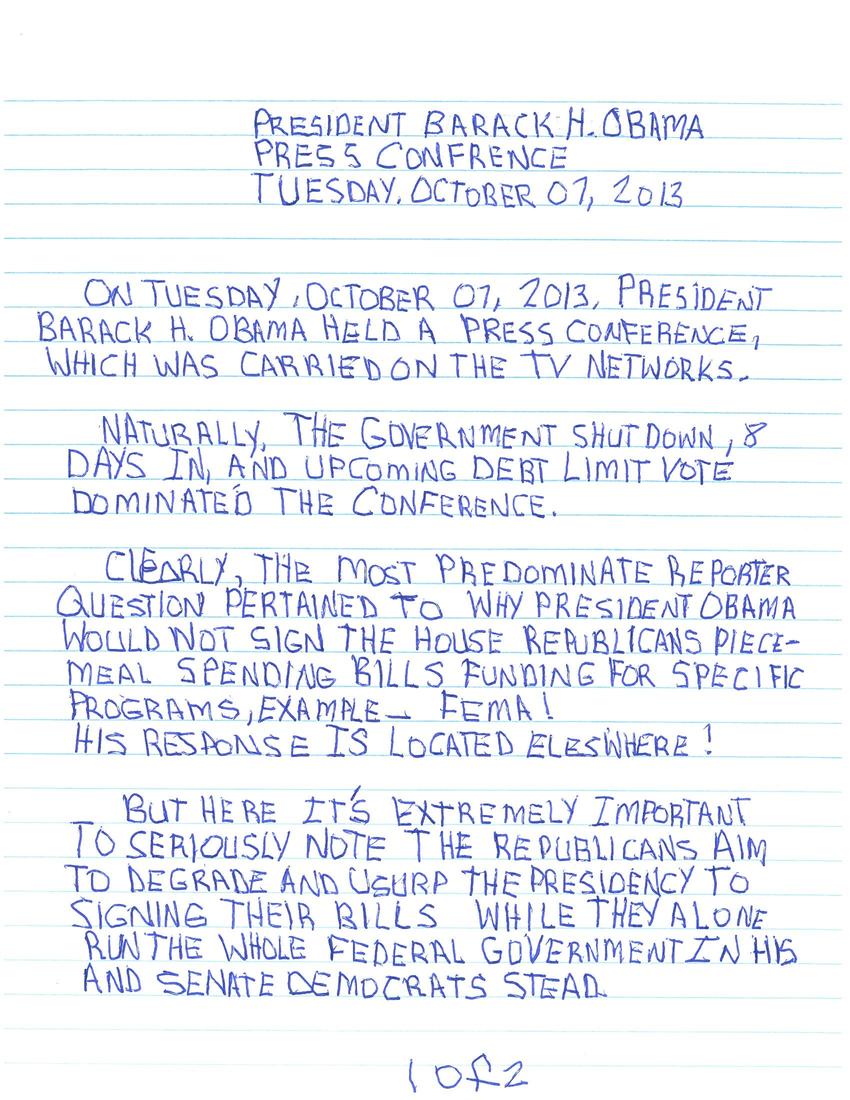 PRESIDENT BARACK H. OBAMA
PRESS CONFRENCE
TUESDAY, OCTOBER 07, 2013
ON TUESDAY, OCTOBER 07, 2013, PRESIDENT
BARACK H. OBAMA HELD A PRESS CONFERENCE,
WHICH WAS CARRIED ON THE TV NETWORKS.
NATURALLY, THE GOVERNMENT SHUTDOWN, 8
DAYS IN, AND UPCOMING DEBT LIMIT VOTE
DOMINATED THE CONFERENCE.
CLEARLY, THE MOST PREDOMINATE REPORTER
QUESTION PERTAINED TO WHY PRESIDENT OBAMA
WOULD NOT SIGN THE HOUSE REPUBLICANS PIECE-
MEAL SPENDING BILLS FUNDING FOR SPECIFIC
PROGRAMS, EXAMPLE – FEMA!
HIS RESPONSE IS LOCATED ELESWHERE!
BUT HERE IT'S EXTREMELY IMPORTANT
TO SERIOUSLY NOTE THE REPUBLICANS AIM
TO DEGRADE AND USURP THE PRESIDENCY TO
SIGNING THEIR BILLS WHILE THEY ALONE
RUN THE WHOLE FEDERAL GOVERNMENT IN HIS
AND SENATE DEMOCRATS STEAD.
1 of 2